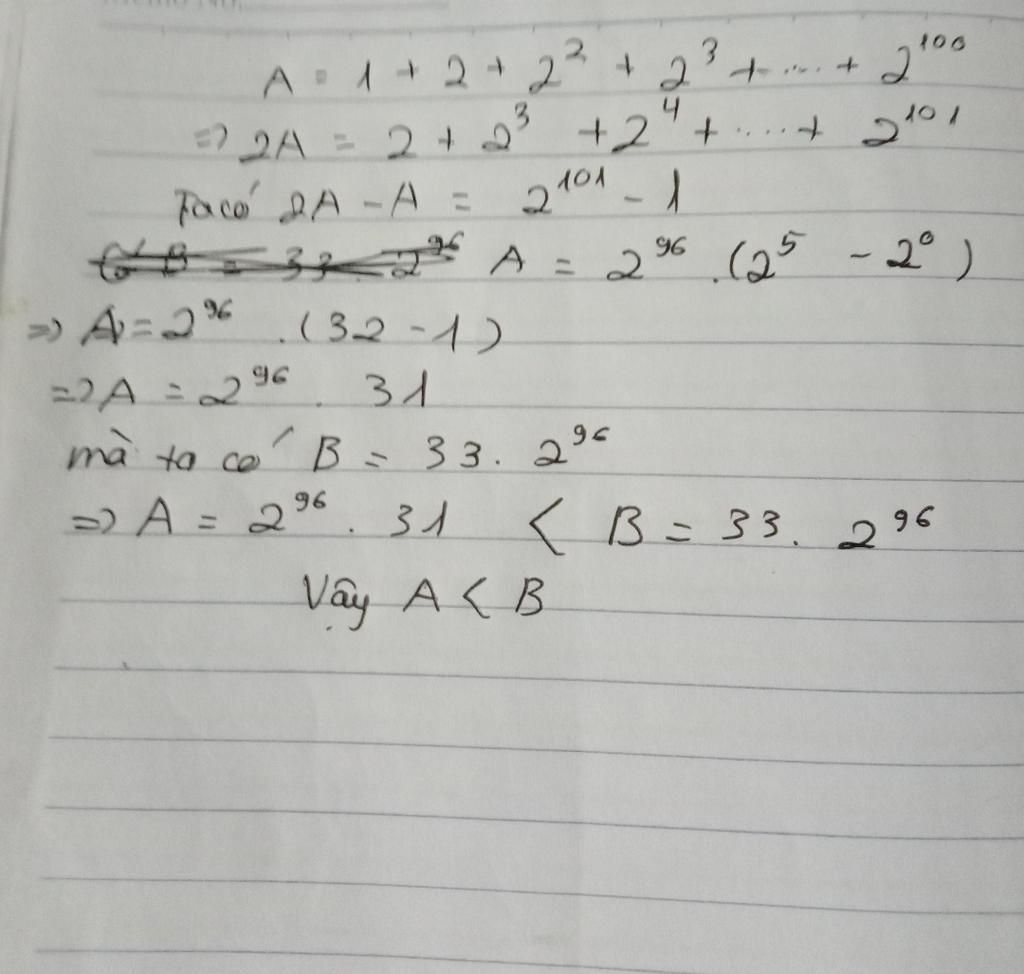 A = 1 + 2 + 2² + 2³ + ... + 2¹⁰⁰
=> 2A = 2 + 2³ + 2⁴ + .... + 2¹⁰¹
Ta có 2A - A = 2¹⁰¹ - 1
A = 2⁹⁶ . (2⁵ - 2⁰)
=> A = 2⁹⁶ . (32 - 1)
=> A = 2⁹⁶ . 31
mà ta có B = 33. 2⁹⁶
=> A = 2⁹⁶ . 31 < B = 33. 2⁹⁶
Vậy A < B